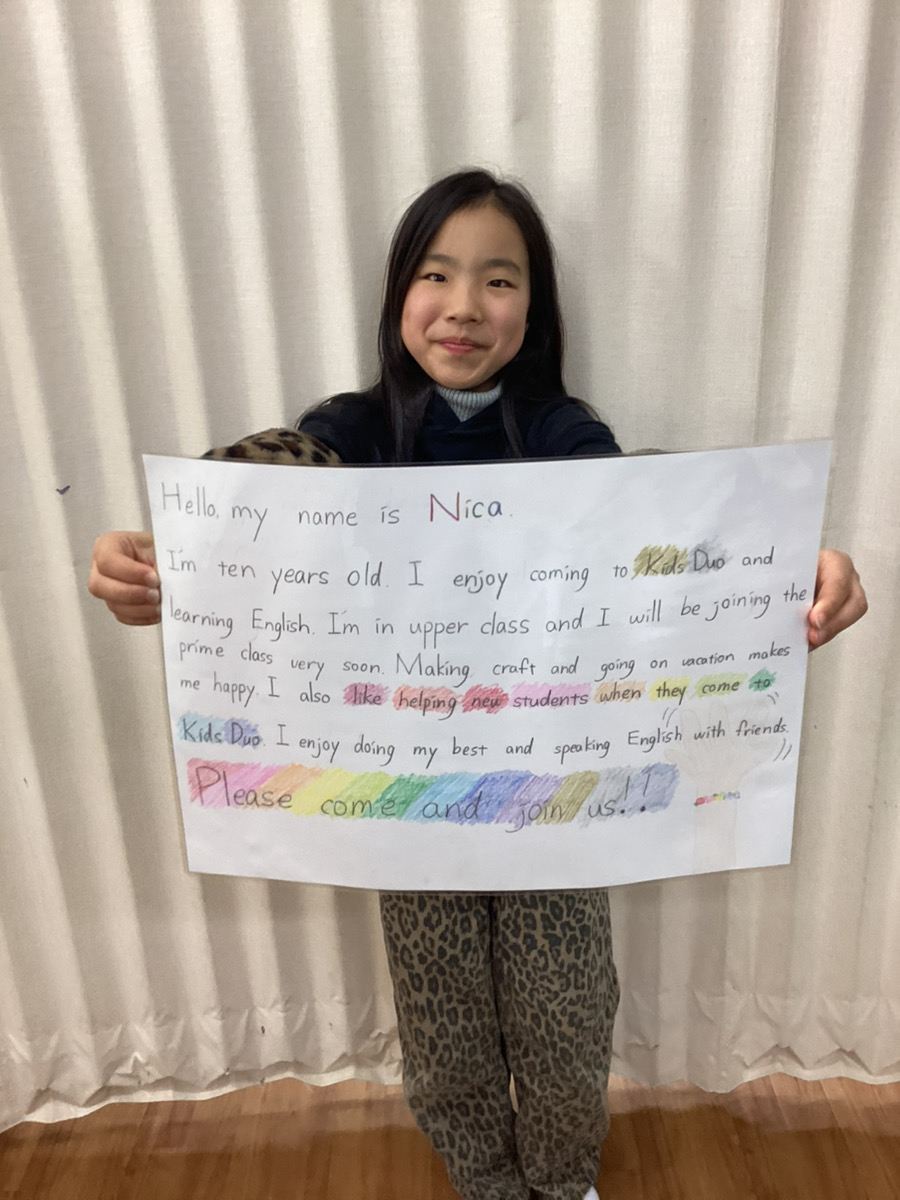 Hello, my name is Nica.
I'm ten years old. I enjoy coming to Kids Duo and
learning English. I'm in upper class and I will be joining the
prime class very soon. Making craft and going on vacation makes
me happy. I also like helping new students when they come to
Kids Duo. I enjoy doing my best and speaking English with friends.
Please come and join us!!